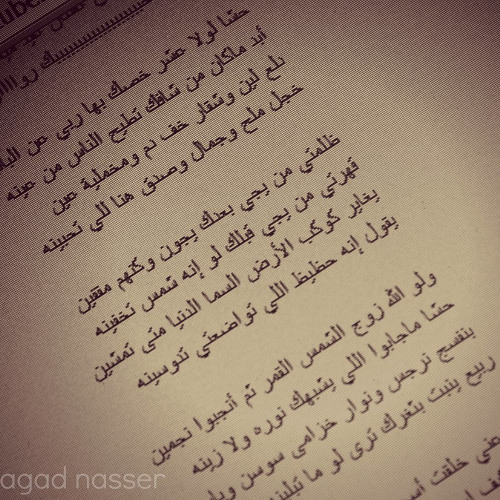 بيييييييييييييييك
حشا لولا عشر خصك بها ربي عن الناس
أبد ماكان من شافك تطيح الناس من عينه
دلع لين وشقار خف دم ومخملية عين
خجل ملح وجمال وصدق هذا اللي تحبينه
ظلمتي من يجي بعدك يجون وكلهم مقفين
قهرتي من يجي قبلك لو إنه شمس تخفينه
يغاير كوكب الأرض السما الدنيا متى تمشين
يقول إنه حظيظ اللي تواضعتي تدوسينه
ولو الله زوج الشمس القمر ثم أنجبوا نجمين
حشا ماجابوا اللي يشبهك نوره ولا زينه
بنفسج نرجس ونوار خزامى سوسن
ربيع ينبت بثغرك ترى لو ما
خلقت
agad nasser